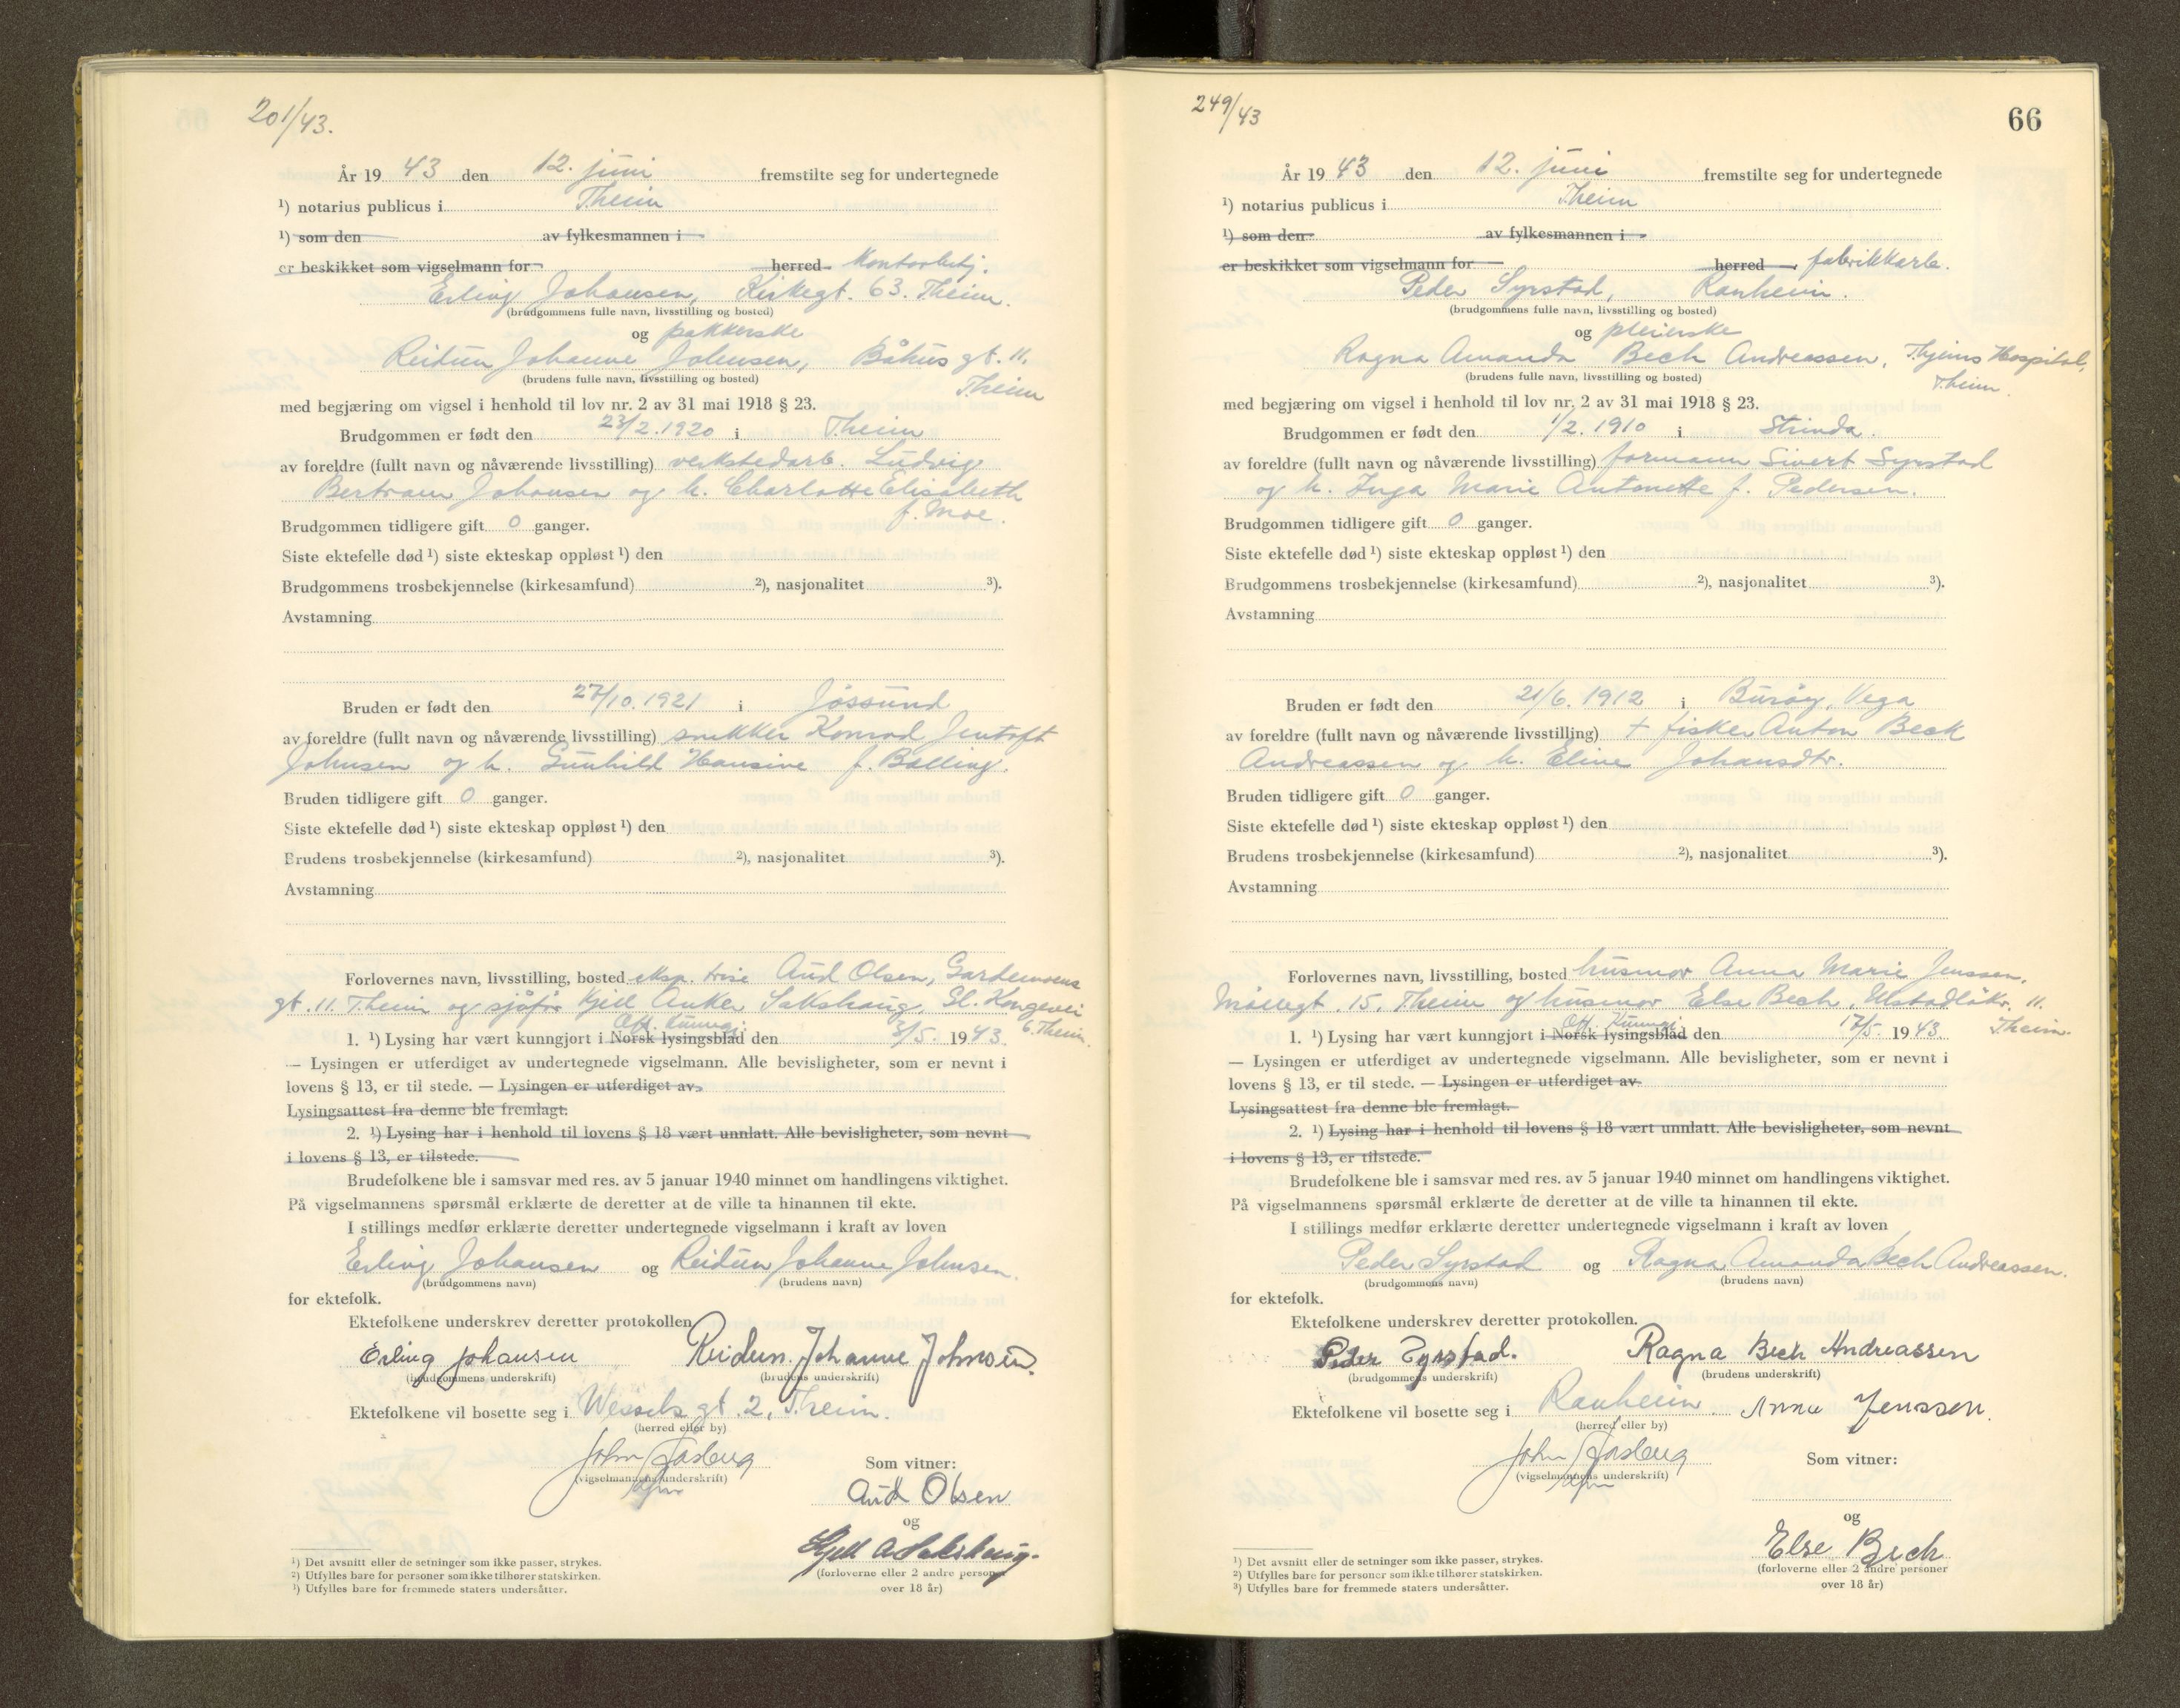 201/43.
År 19 43 den 12. juni fremstilte seg for undertegnede
¹) notarius publicus i Theim
¹) som den av fylkesmannen i
er beskikket som vigselmann for herred kontorbetj.
Erling Johansen, Kirkegt. 63. Theim.
(brudgommens fulle navn, livsstilling og bosted)
og pakkerske
Reidun Johanne Johnsen, Båhus gt. 11.
(brudens fulle navn, livsstilling og bosted) Theim
med begjæring om vigsel i henhold til lov nr. 2 av 31 mai 1918 § 23.
Brudgommen er født den 23/2. 1920 i Theim
av foreldre (fullt navn og nåværende livsstilling) verkstedarb. Ludvig
Bertram Johansen og h. Charlotte Elisabeth
f. Moe.
Brudgommen tidligere gift 0 ganger.
Siste ektefelle død ¹) siste ekteskap oppløst ¹) den
Brudgommens trosbekjennelse (kirkesamfund) ²), nasjonalitet ³).
Avstamning
Bruden er født den 27/10. 1921 i Jøssund
av foreldre (fullt navn og nåværende livsstilling) snekker Konrad Jentoft
Johnsen og h. Gunhild Hansine f. Balling.
Bruden tidligere gift 0 ganger.
Siste ektefelle død ¹) siste ekteskap oppløst ¹) den
Brudens trosbekjennelse (kirkesamfund) ²), nasjonalitet ³).
Avstamning
Forlovernes navn, livsstilling, bosted eksp. trise Aud Olsen, Gardemoens
gt. 11. Theim og sjåfør Kjell Anker Sakshaug, Gl. Kongevei
6. Theim.
Off. Kunngj.
1. ¹) Lysing har vært kunngjort i Norsk lysingsblad den 3/5. 1943.
— Lysingen er utferdiget av undertegnede vigselmann. Alle bevisligheter, som er nevnt i
lovens § 13, er til stede. — Lysingen er utferdiget av
Lysingsattest fra denne ble fremlagt.
2. ¹) Lysing har i henhold til lovens § 18 vært unnlatt. Alle bevisligheter, som nevnt
i lovens § 13, er tilstede.
Brudefolkene ble i samsvar med res. av 5 januar 1940 minnet om handlingens viktighet.
På vigselmannens spørsmål erklærte de deretter at de ville ta hinannen til ekte.
I stillings medfør erklærte deretter undertegnede vigselmann i kraft av loven
Erling Johansen og Reidun Johanne Johnsen.
(brudgommens navn) (brudens navn)
for ektefolk.
Ektefolkene underskrev deretter protokollen
Erling Johansen Reidun Johanne Johnsen.
(brudgommens underskrift) (brudens underskrift)
Ektefolkene vil bosette seg i Wessels gt. 2, Theim.
(herred eller by)
John
(vigselmannens underskrift) Som vitner:
Aud Olsen
og
Kjell A Sakshaug.
(forloverne eller 2 andre personer
over 18 år)
¹) Det avsnitt eller de setninger som ikke passer, strykes.
²) Utfylles bare for personer som ikke tilhører statskirken.
³) Utfylles bare for fremmede staters undersåtter.
249/43
66
År 19 43 den 12. juni fremstilte seg for undertegnede
¹) notarius publicus i Theim
¹) som den av fylkesmannen i
er beskikket som vigselmann for herred fabrikkarb.
Peder Syrstad, Ranheim.
(brudgommens fulle navn, livsstilling og bosted)
og pleierske
Ragna Amanda Bech Andreassen, Thjems Hospital,
(brudens fulle navn, livsstilling og bosted) Theim.
med begjæring om vigsel i henhold til lov nr. 2 av 31 mai 1918 § 23.
Brudgommen er født den 1/2. 1910 i Strinda.
av foreldre (fullt navn og nåværende livsstilling) formann Sivert Syrstad
og h. Inga Marie Antonette f. Pedersen.
Brudgommen tidligere gift 0 ganger.
Siste ektefelle død ¹) siste ekteskap oppløst ¹) den
Brudgommens trosbekjennelse (kirkesamfund) ²), nasjonalitet ³).
Avstamning
Bruden er født den 21/6. 1912 i Burøy, Vega
av foreldre (fullt navn og nåværende livsstilling) + fisker Anton Beck
Andreassen og h. Eline Johansdtr.
Bruden tidligere gift 0 ganger.
Siste ektefelle død ¹) siste ekteskap oppløst ¹) den
Brudens trosbekjennelse (kirkesamfund) ²), nasjonalitet ³).
Avstamning
Forlovernes navn, livsstilling, bosted husmor Anna Marie Jenssen,
Møllegt. 15, Theim og husmor Else Bech, Ulstadløkv. 11.
Theim.
Off. Kunngj
1. ¹) Lysing har vært kunngjort i Norsk lysingsblad den 17/5. 1943.
— Lysingen er utferdiget av undertegnede vigselmann. Alle bevisligheter, som er nevnt i
lovens § 13, er til stede. — Lysingen er utferdiget av
Lysingsattest fra denne ble fremlagt.
2. ¹) Lysing har i henhold til lovens § 18 vært unnlatt. Alle bevisligheter, som nevnt
i lovens § 13, er tilstede.
Brudefolkene ble i samsvar med res. av 5 januar 1940 minnet om handlingens viktighet.
På vigselmannens spørsmål erklærte de deretter at de ville ta hinannen til ekte.
I stillings medfør erklærte deretter undertegnede vigselmann i kraft av loven
Peder Syrstad og Ragna Amanda Bech Andreassen.
(brudgommens navn) (brudens navn)
for ektefolk.
Ektefolkene underskrev deretter protokollen.
Peder Syrstad. Ragna Bech Andreassen
(brudgommens underskrift) (brudens underskrift)
Ektefolkene vil bosette seg i Ranheim. Anna Jenssen.
(herred eller by)
John
(vigselmannens underskrift) Som vitner:
og
Else Bech
(forloverne eller 2 andre personer
over 18 år)
¹) Det avsnitt eller de setninger som ikke passer, strykes.
²) Utfylles bare for personer som ikke tilhører statskirken.
³) Utfylles bare for fremmede staters undersåtter.